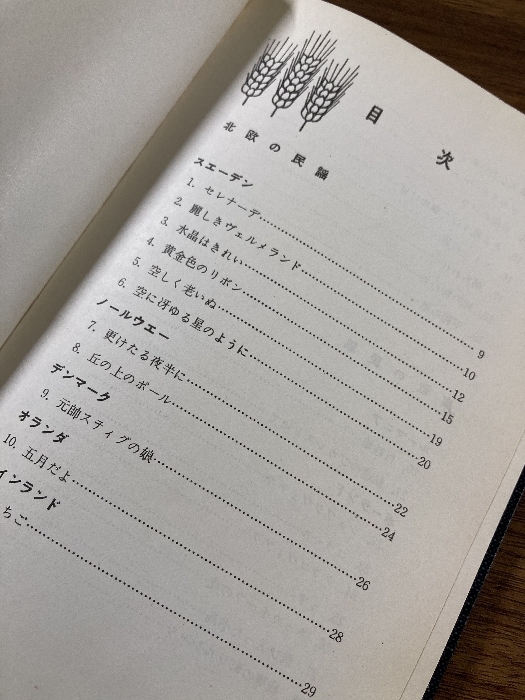 目次
北欧の民謡
スエーデン
1. セレナーデ……9
2. 麗しきヴェルメランド……10
3. 水晶はきれい……12
4. 黄金色のリボン……15
5. 空しく老いぬ……19
6. 空に冴ゆる星のように……20
ノールウエー
7. 更けたる夜半に……22
8. 丘の上のポール……24
デンマーク
9. 元帥スティグの娘……26
オランダ
10. 五月だよ……28
インランド
ちご……29